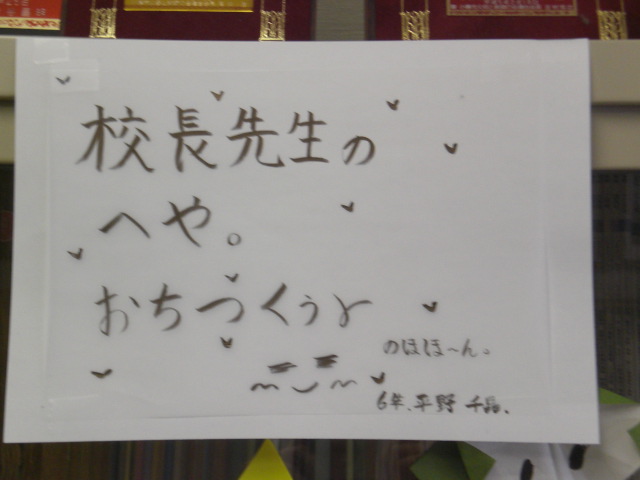 校長先生の
へや。
おちつくぅ〜
のほほ〜ん。
6年、平野 千晶、